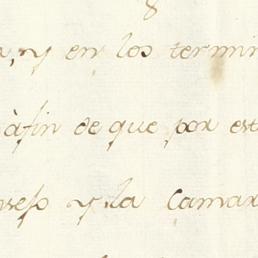 y en los termin
àfin de que por est
nsejo y la Camar